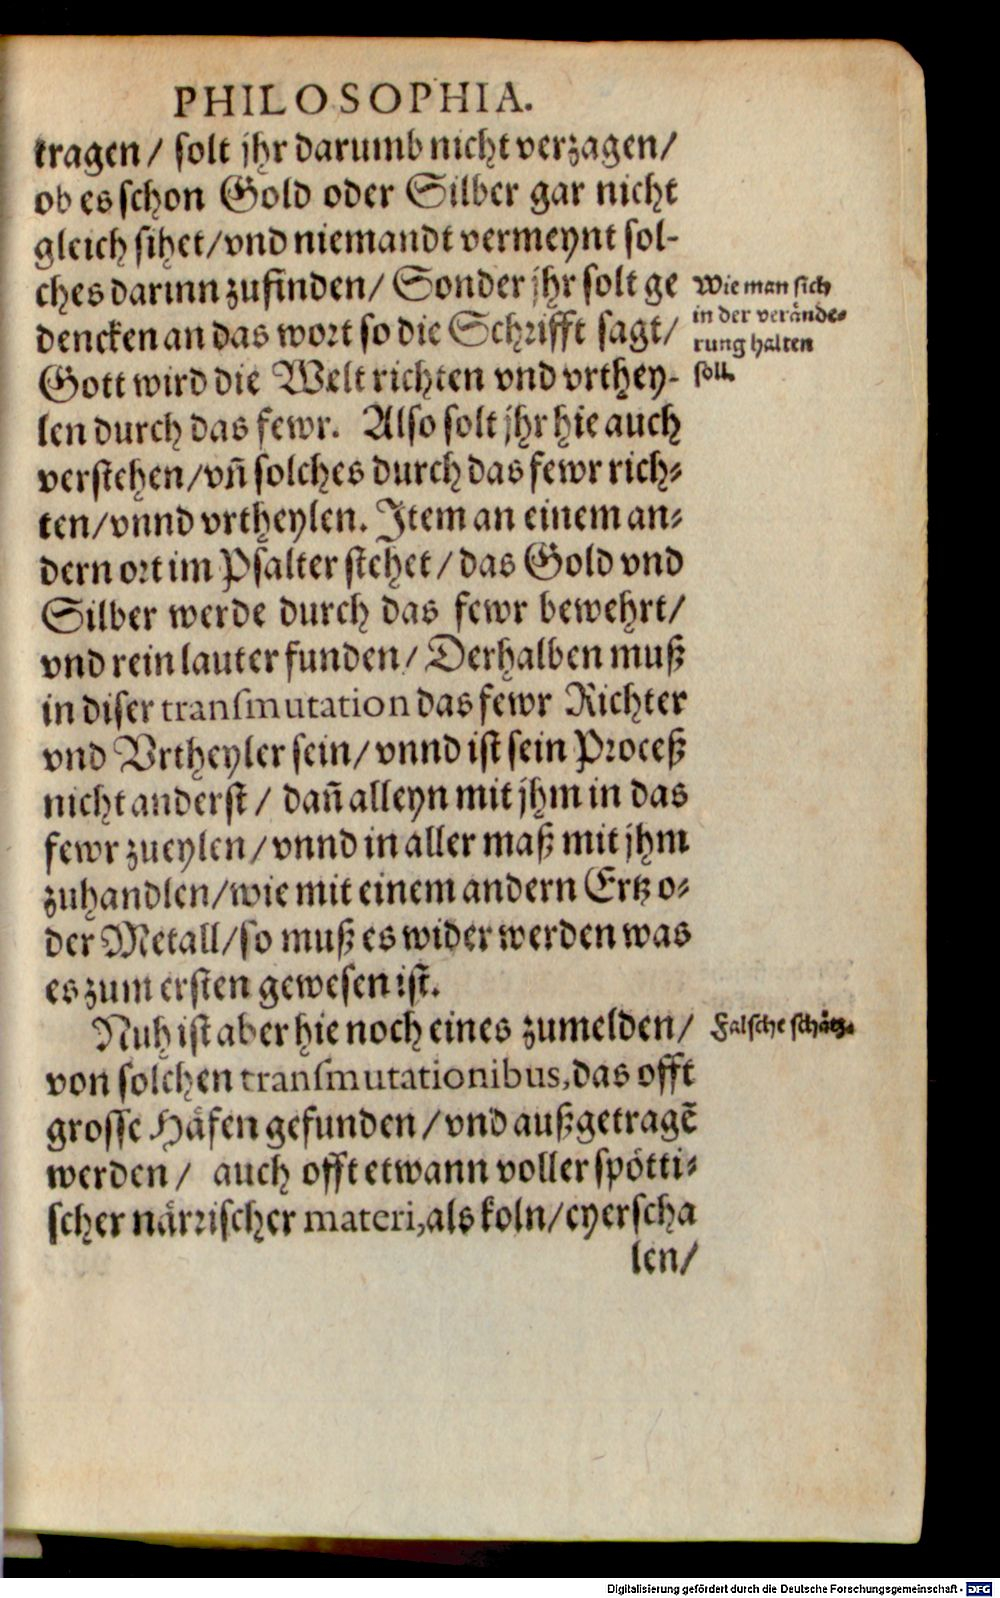 PHILOSOPHIA.
tragen/ solt jhr darumb nicht verzagen/
ob es schon Gold oder Silber gar nicht
gleich sihet/vnd niemandt vermeynt sol-
ches darinn zufinden/ Sonder jhr solt ge
dencken an das wort so die Schrifft sagt/
Gott wird die Welt richten vnd vrthey-
len durch das fewr. Also solt jhr hie auch
verstehen/vñ solches durch das fewr rich-
ten/vnnd vrtheylen. Item an einem an-
dern ort im Psalter stehet/das Gold vnd
Silber werde durch das fewr bewehrt/
vnd rein lauter funden/ Derhalben muß
in diser transmutation das fewr Richter
vnd Vrtheyler sein/vnnd ist sein Proceß
nicht anderst/ dañ alleyn mit jhm in das
fewr zueylen/vnnd in aller maß mit jhm
zuhandlen/wie mit einem andern Ertz o-
der Metall/so muß es wider werden was
es zum ersten gewesen ist.
Nuh ist aber hie noch eines zumelden/
von solchen transmutationibus,das offt
grosse Häfen gefunden/vnd außgetragẽ
werden/ auch offt etwann voller spötti-
scher närrischer materi,als koln/eyerscha
len/
Wie man sich
in der verände-
rung halten
soll.
Falsche schätz.
Digitalisierung gefördert durch die Deutsche Forschungsgemeinschaft - DFG